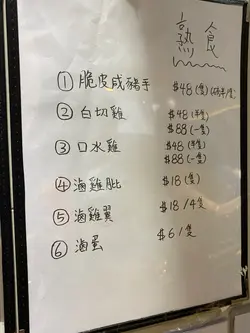 熟食
① 脆皮咸豬手 $48 (隻)
② 白切雞 $48 (半隻)
$88 (一隻)
③ 口水雞 $48 (半隻)
$88 (一隻)
④ 滷雞肶 $18 (隻)
⑤ 滷雞翼 $18 / 4隻
⑥ 滷蛋 $6 / 隻